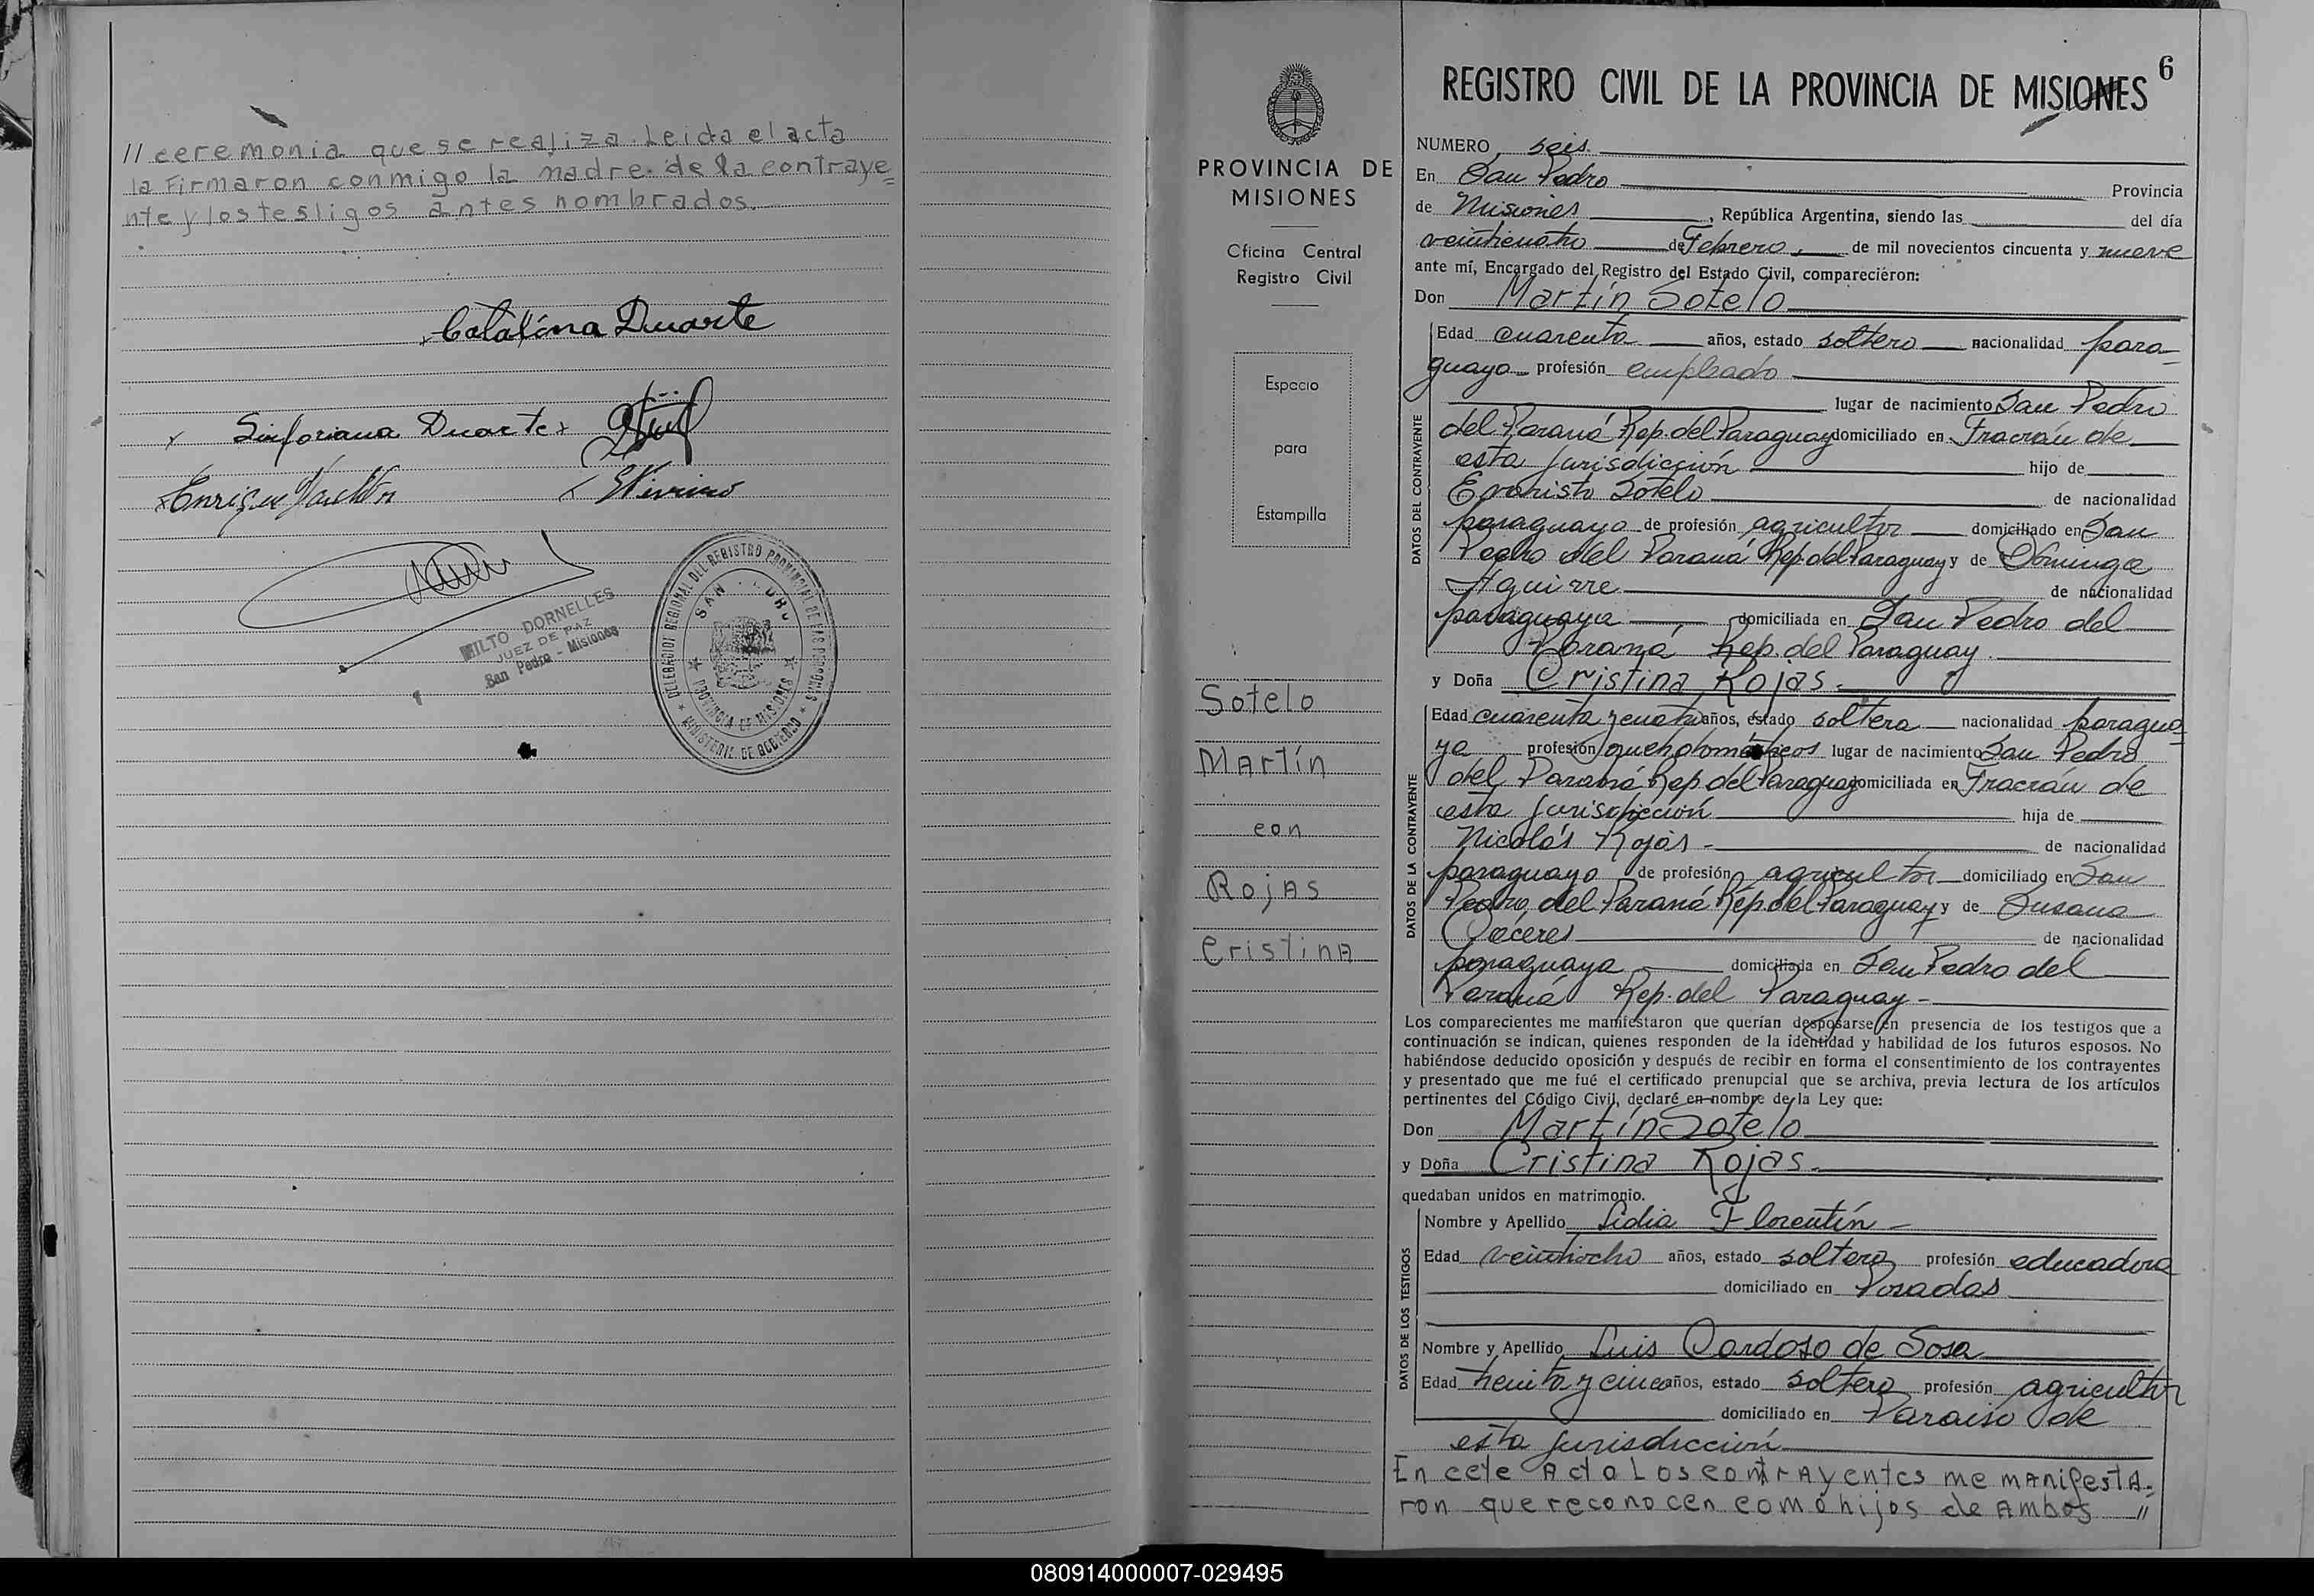 // ceremonia que se realiza. Leida el acta
la Firmaron conmigo la madre de la contraye=
nte y los testigos antes nombrados.
Catalina Duarte
x Sinforiana Duarte x
x Enrique
HILTO DORNELLES
JUEZ DE PAZ
San Pedro - Misiones
DELEGACION REGIONAL DEL REGISTRO PROVINCIAL DE LAS PERSONAS
SAN PEDRO
PROVINCIA DE MISIONES
* MINISTERIO DE GOBIERNO *
PROVINCIA DE
MISIONES
Oficina Central
Registro Civil
Espacio
para
Estampilla
Sotelo
Martín
con
Rojas
Cristina
6
REGISTRO CIVIL DE LA PROVINCIA DE MISIONES
NUMERO seis.
En San Pedro Provincia
de Misiones, República Argentina, siendo las del día
veinticuatro de Febrero, de mil novecientos cincuenta y nueve
ante mí, Encargado del Registro del Estado Civil, comparecieron:
Don Martín Sotelo
DATOS DEL CONTRAYENTE
Edad cuarenta años, estado soltero nacionalidad para=
guaya profesión empleado
lugar de nacimiento San Pedro
del Paraná Rep. del Paraguay domiciliado en Fracrán de
esta jurisdicción hijo de
Evaristo Sotelo de nacionalidad
paraguaya de profesión agricultor domiciliado en San
Pedro del Paraná Rep. del Paraguay y de Dominga
Aguirre de nacionalidad
paraguaya domiciliada en San Pedro del
Paraná Rep. del Paraguay.
y Doña Cristina Rojas.
DATOS DE LA CONTRAYENTE
Edad cuarenta y cuatro años, estado soltera nacionalidad paragua=
ya profesión lugar de nacimiento San Pedro
del Paraná Rep. del Paraguay domiciliada en Fracrán de
esta jurisdicción hija de
Nicolás Rojas - de nacionalidad
paraguayo de profesión agricultor domiciliado en San
Pedro del Paraná Rep. del Paraguay y de Susana
Cáceres de nacionalidad
paraguaya domiciliada en San Pedro del
Paraná Rep. del Paraguay -
Los comparecientes me manifestaron que querían desposarse en presencia de los testigos que a
continuación se indican, quienes responden de la identidad y habilidad de los futuros esposos. No
habiéndose deducido oposición y después de recibir en forma el consentimiento de los contrayentes
y presentado que me fué el certificado prenupcial que se archiva, previa lectura de los artículos
pertinentes del Código Civil, declaré en nombre de la Ley que:
Don Martín Sotelo
y Doña Cristina Rojas.
quedaban unidos en matrimonio.
DATOS DE LOS TESTIGOS
Nombre y Apellido Lidia Florentín -
Edad veintiocho años, estado soltera profesión educadora
domiciliado en Posadas
Nombre y Apellido Luis Cardoso de Sosa
Edad treinta y cinco años, estado soltero profesión agricultor
domiciliado en Paraiso de
esta jurisdicción
En este Acta Los contrayentes me manifesta=
ron que reconocen como hijos de Ambos //
080914000007-029495